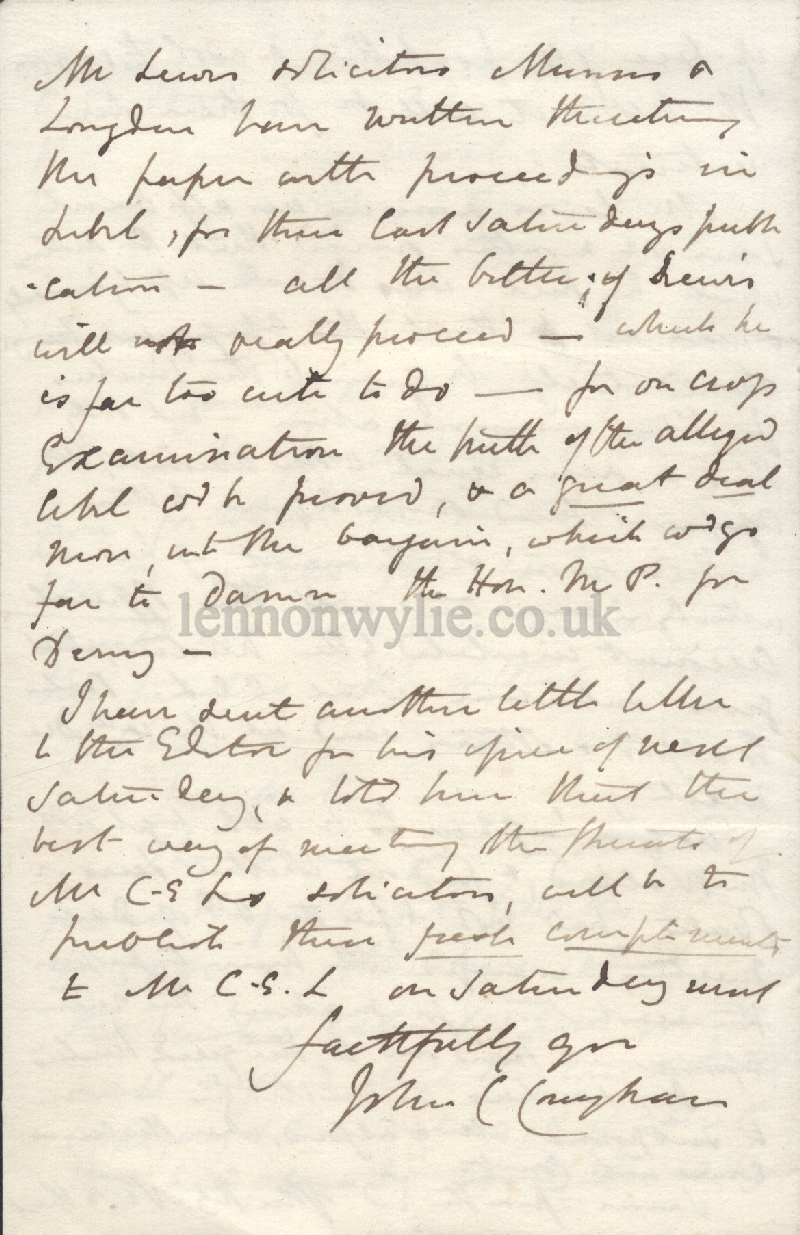 Mr Lewis solicitors Munns &
Longden have written threatening
the paper with proceedings in
Libel, for their last Saturdays publi
-cation — all the better; if Lewis
will not really proceed — which he
is far too cute to do — for on cross
Examination the truth of the alleged
libel cod be proved, & a great deal
more, into the bargain, which wd go
far to damn the Hon. M P. for
Derry —
I have sent another little letter
to the Editor for his issue of next
Saturday, & told him that the
best way of meeting the threats of
Mr C-E Ls solicitors, will be to
publish these fresh compliments
to Mr C-E. L on Saturday next
faithfully yrs
John C
lennonwylie.co.uk